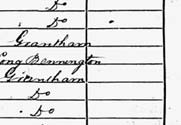 Do
Do
Grantham
Long Bennington
Do
Do